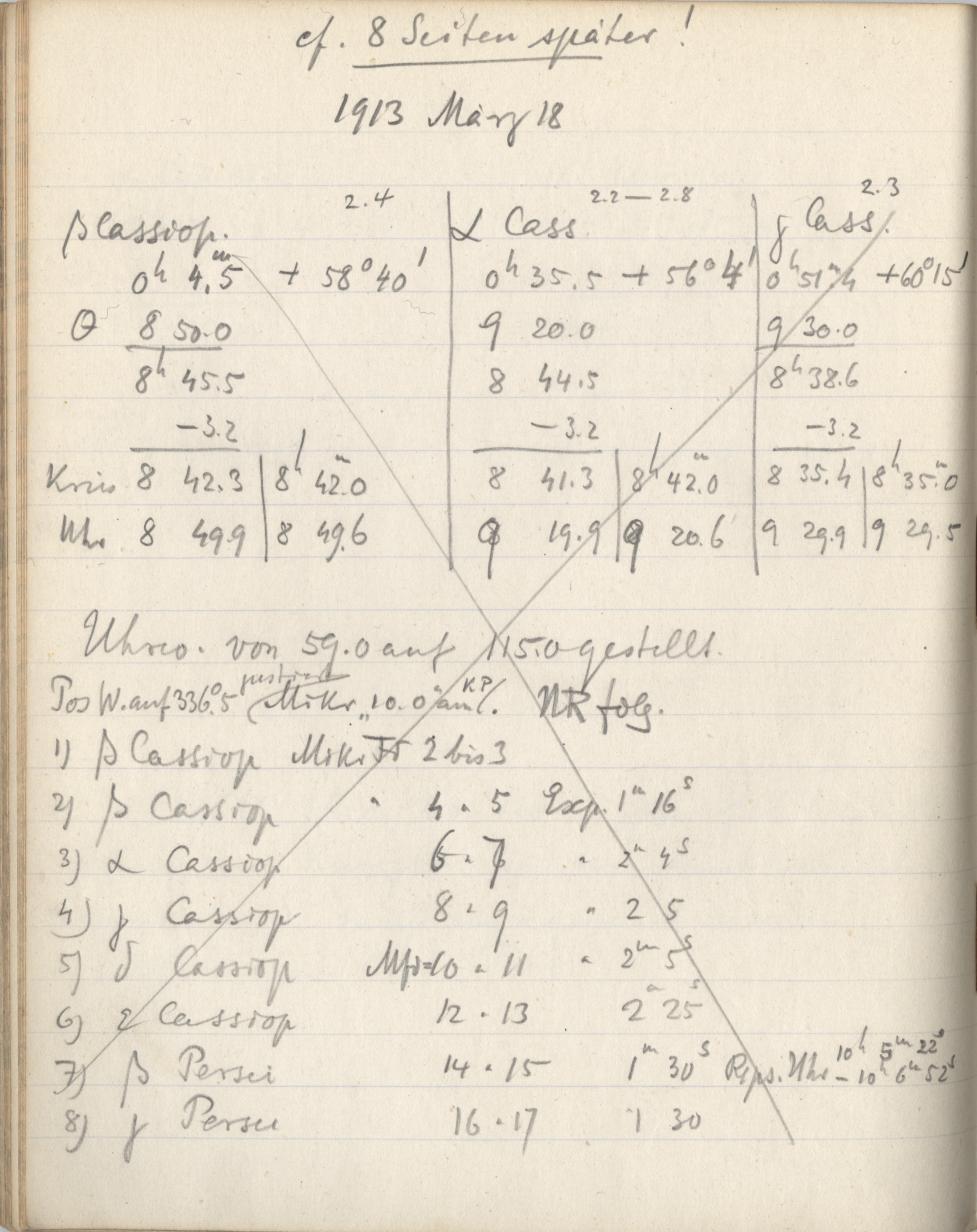 cf. 8 Seiten später!
1913 März 18
2.4 2.2—2.8 2.3
β Cassiop. α Cass. γ Cass.
0h 4.5m + 58° 40' 0h 35.5 + 56° 4' 0h 51m4 + 60° 15'
θ 8 50.0 9 20.0 9 30.0
8h 45.5 8 44.5 8h 38.6
−3.2 −3.2 −3.2
Kreis 8 42.3 8h 42m.0 8 41.3 8h 42m.0 8 35.4 8h 35m.0
Uhr 8 49.9 8 49.6 9 19.9 9 20.6 9 29.9 9 29.5
Uhrco. von 59.0 auf 115.0 gestellt.
justiert KP
Pos W. auf 336°.5 (Mikr „10.0" am folg.
1) β Cassiop Mikr 2 bis 3
2) β Cassiop " 4 " 5 Exp. 1m 16s
3) α Cassiop 6 " 7 " 2m 4s
4) γ Cassiop 8 " 9 " 2 5
5) δ Cassiop 10 " 11 " 2m 5s
6) ε Cassiop 12 " 13 2m 25s
7) β Persei 14 " 15 1m 30s Uhr 10h 5m 22s
− 10h 6m 52s
8) γ Persei 16 " 17 1 30